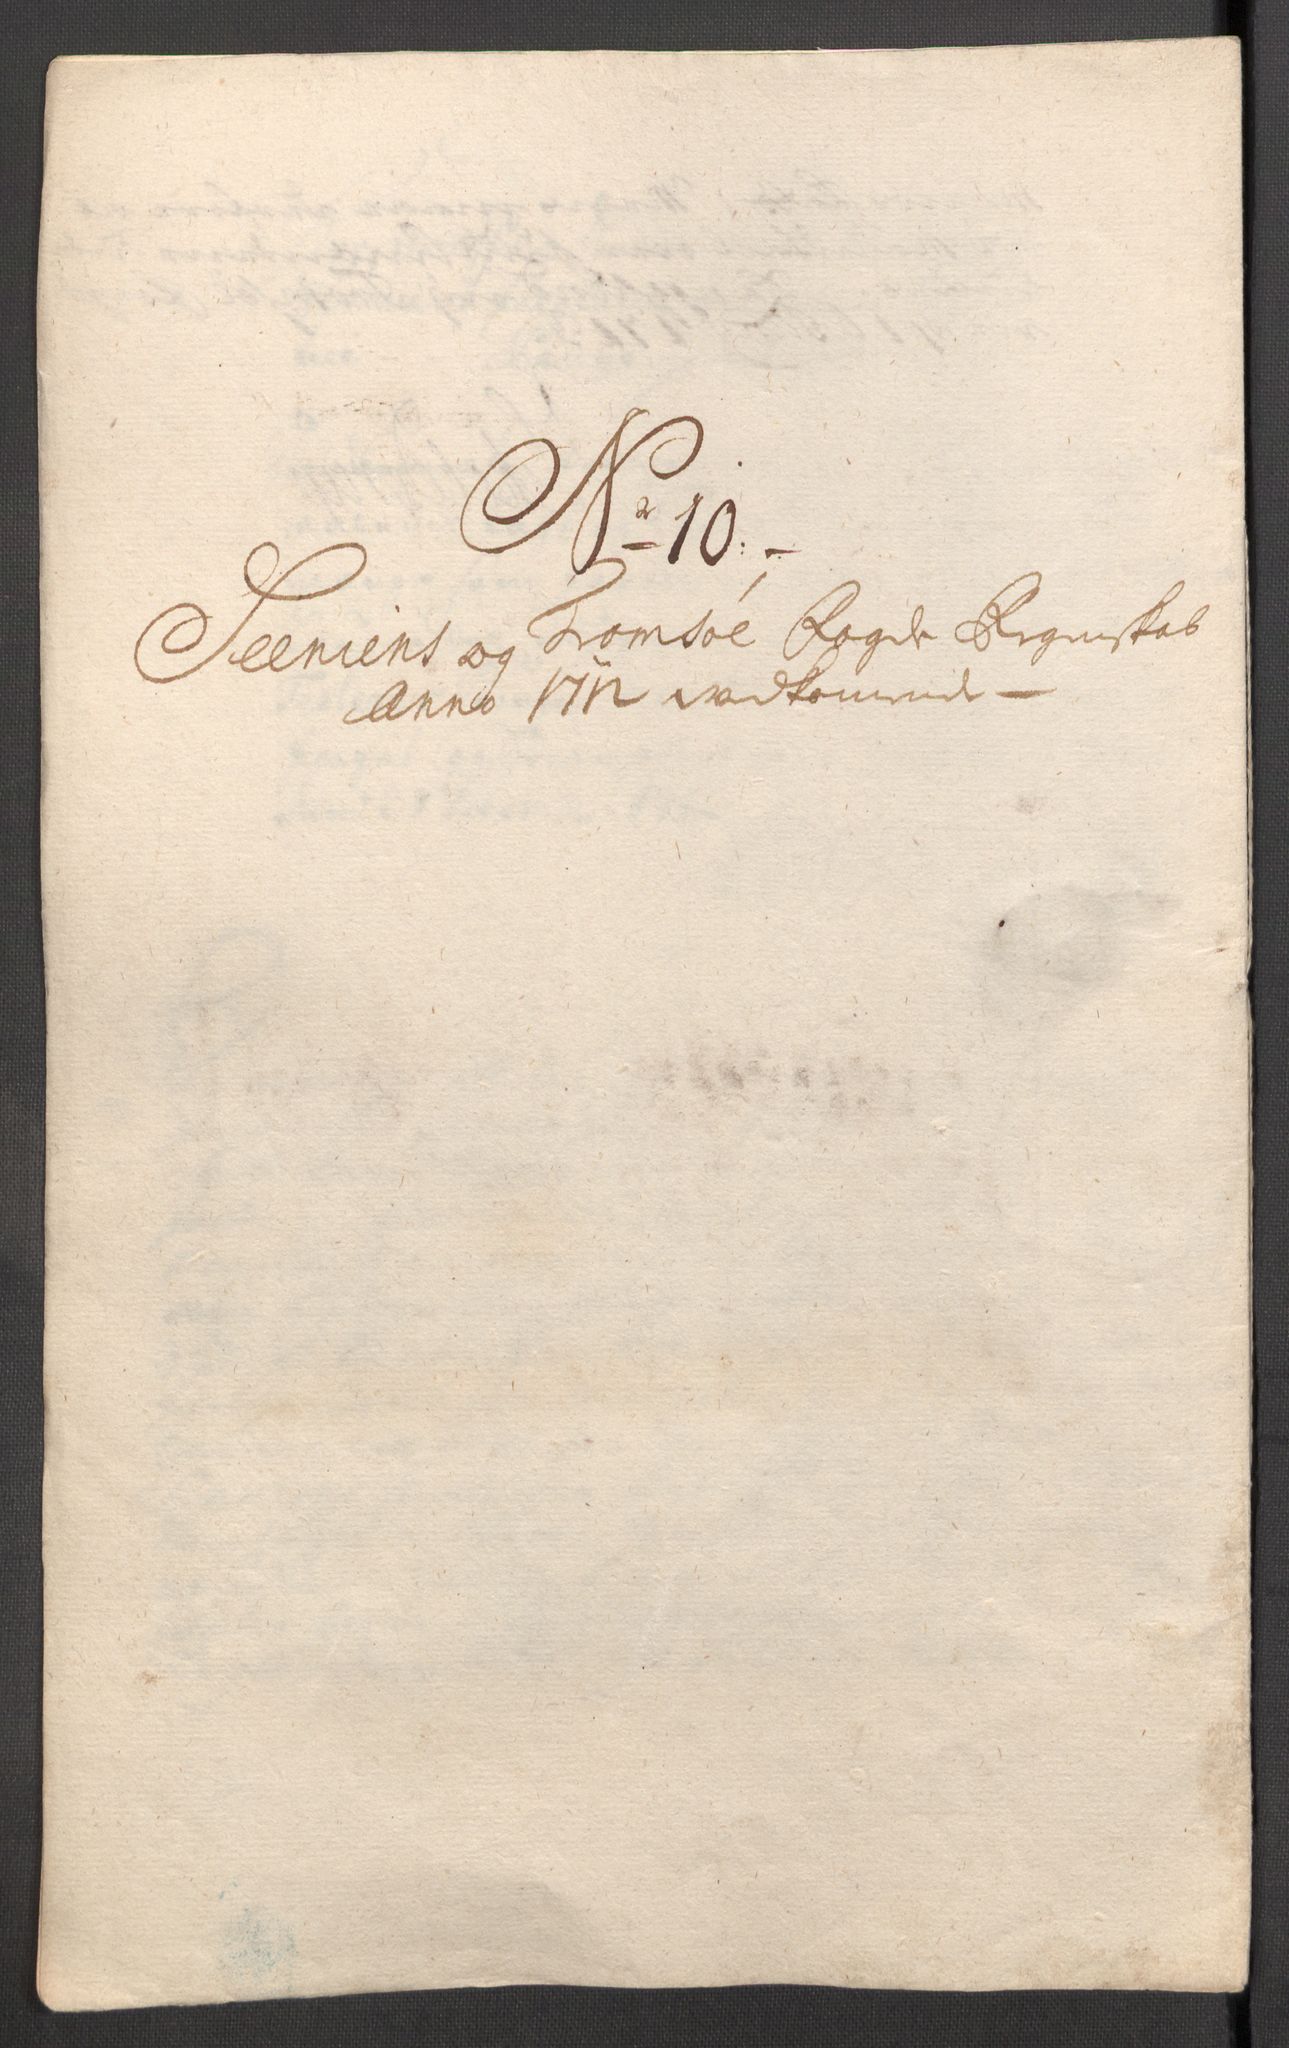 No 10.
Seeniens og Tromsøe Fogde Regenskab
Anno 1712 vedkommende